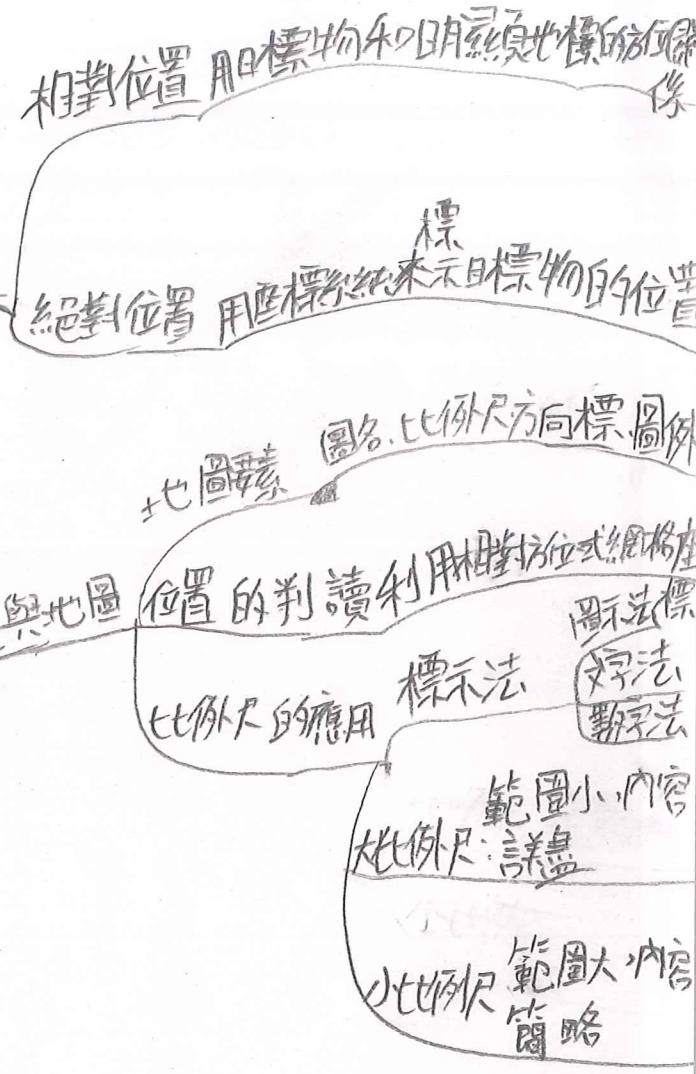 相對位置 用目標物和明顯地標的方位關
係
標
絕對位置 用座標系統來示目標物的位置
地圖要素 圖名、比例尺、方向標、圖例
與地圖
位置的判讀 利用相對方位或網格座
標
比例尺的應用
標示法
圖示法
文字法
數字法
大比例尺:範圍小、內容
詳盡
小比例尺 範圍大、內容
簡略